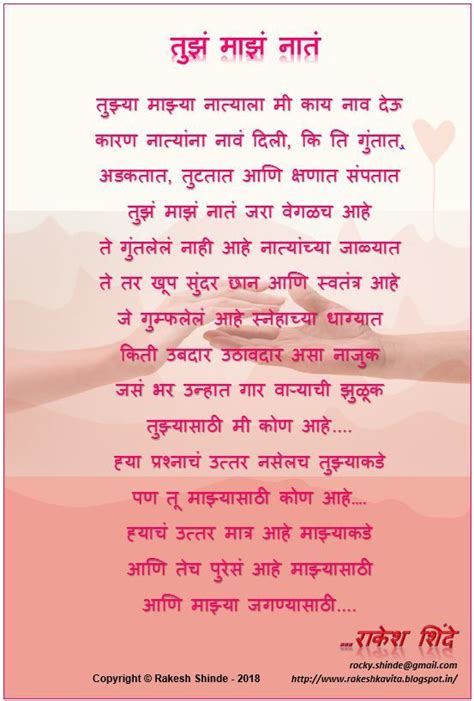 तुझं माझं नातं
तुझ्या माझ्या नात्याला मी काय नाव देऊ
कारण नात्यांना नावं दिली, कि ति गुंतात,
अडकतात, तुटतात आणि क्षणात संपतात
तुझं माझं नातं जरा वेगळच आहे
ते गुंतलेलं नाही आहे नात्यांच्या जाळ्यात
ते तर खूप सुंदर छान आणि स्वतंत्र आहे
जे गुम्फलेलं आहे स्नेहाच्या धाग्यात
किती उबदार उठावदार असा नाजुक
जसं भर उन्हात गार वाऱ्याची झुळूक
तुझ्यासाठी मी कोण आहे....
ह्या प्रश्नाचं उत्तर नसेलच तुझ्याकडे
पण तू माझ्यासाठी कोण आहे....
ह्याचं उत्तर मात्र आहे माझ्याकडे
आणि तेच पुरेसं आहे माझ्यासाठी
आणि माझ्या जगण्यासाठी....
...राकेश शिंदे
rocky.shinde@gmail.com
Copyright © Rakesh Shinde - 2018 http://www.rakeshkavita.blogspot.in/